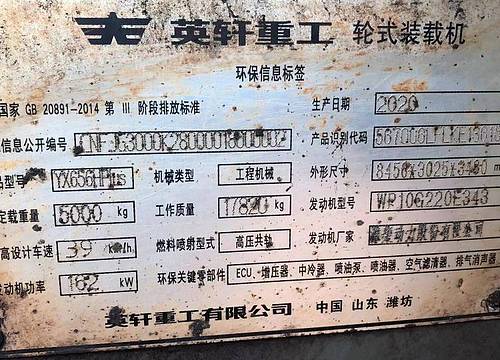 英轩重工 轮式装载机
环保信息标签
国家 GB 20891-2014 第 III 阶段排放标准 生产日期 2020
信息公开编号 产品识别代码
型号 YX656HPlus 机械类型 工程机械 外形尺寸 8456x3025x3480 m
定载重量 5000 kg 工作质量 17820 kg 发动机型号 WP10G220E343
高设计车速 39 km/h 燃料喷射型式 高压共轨 发动机厂家 动力股份有限公司
发动机功率 162 kW 环保关键零部件 ECU、增压器、中冷器、喷油泵、喷油器、空气滤清器、排气消声器
英轩重工有限公司 中国 山东 潍坊